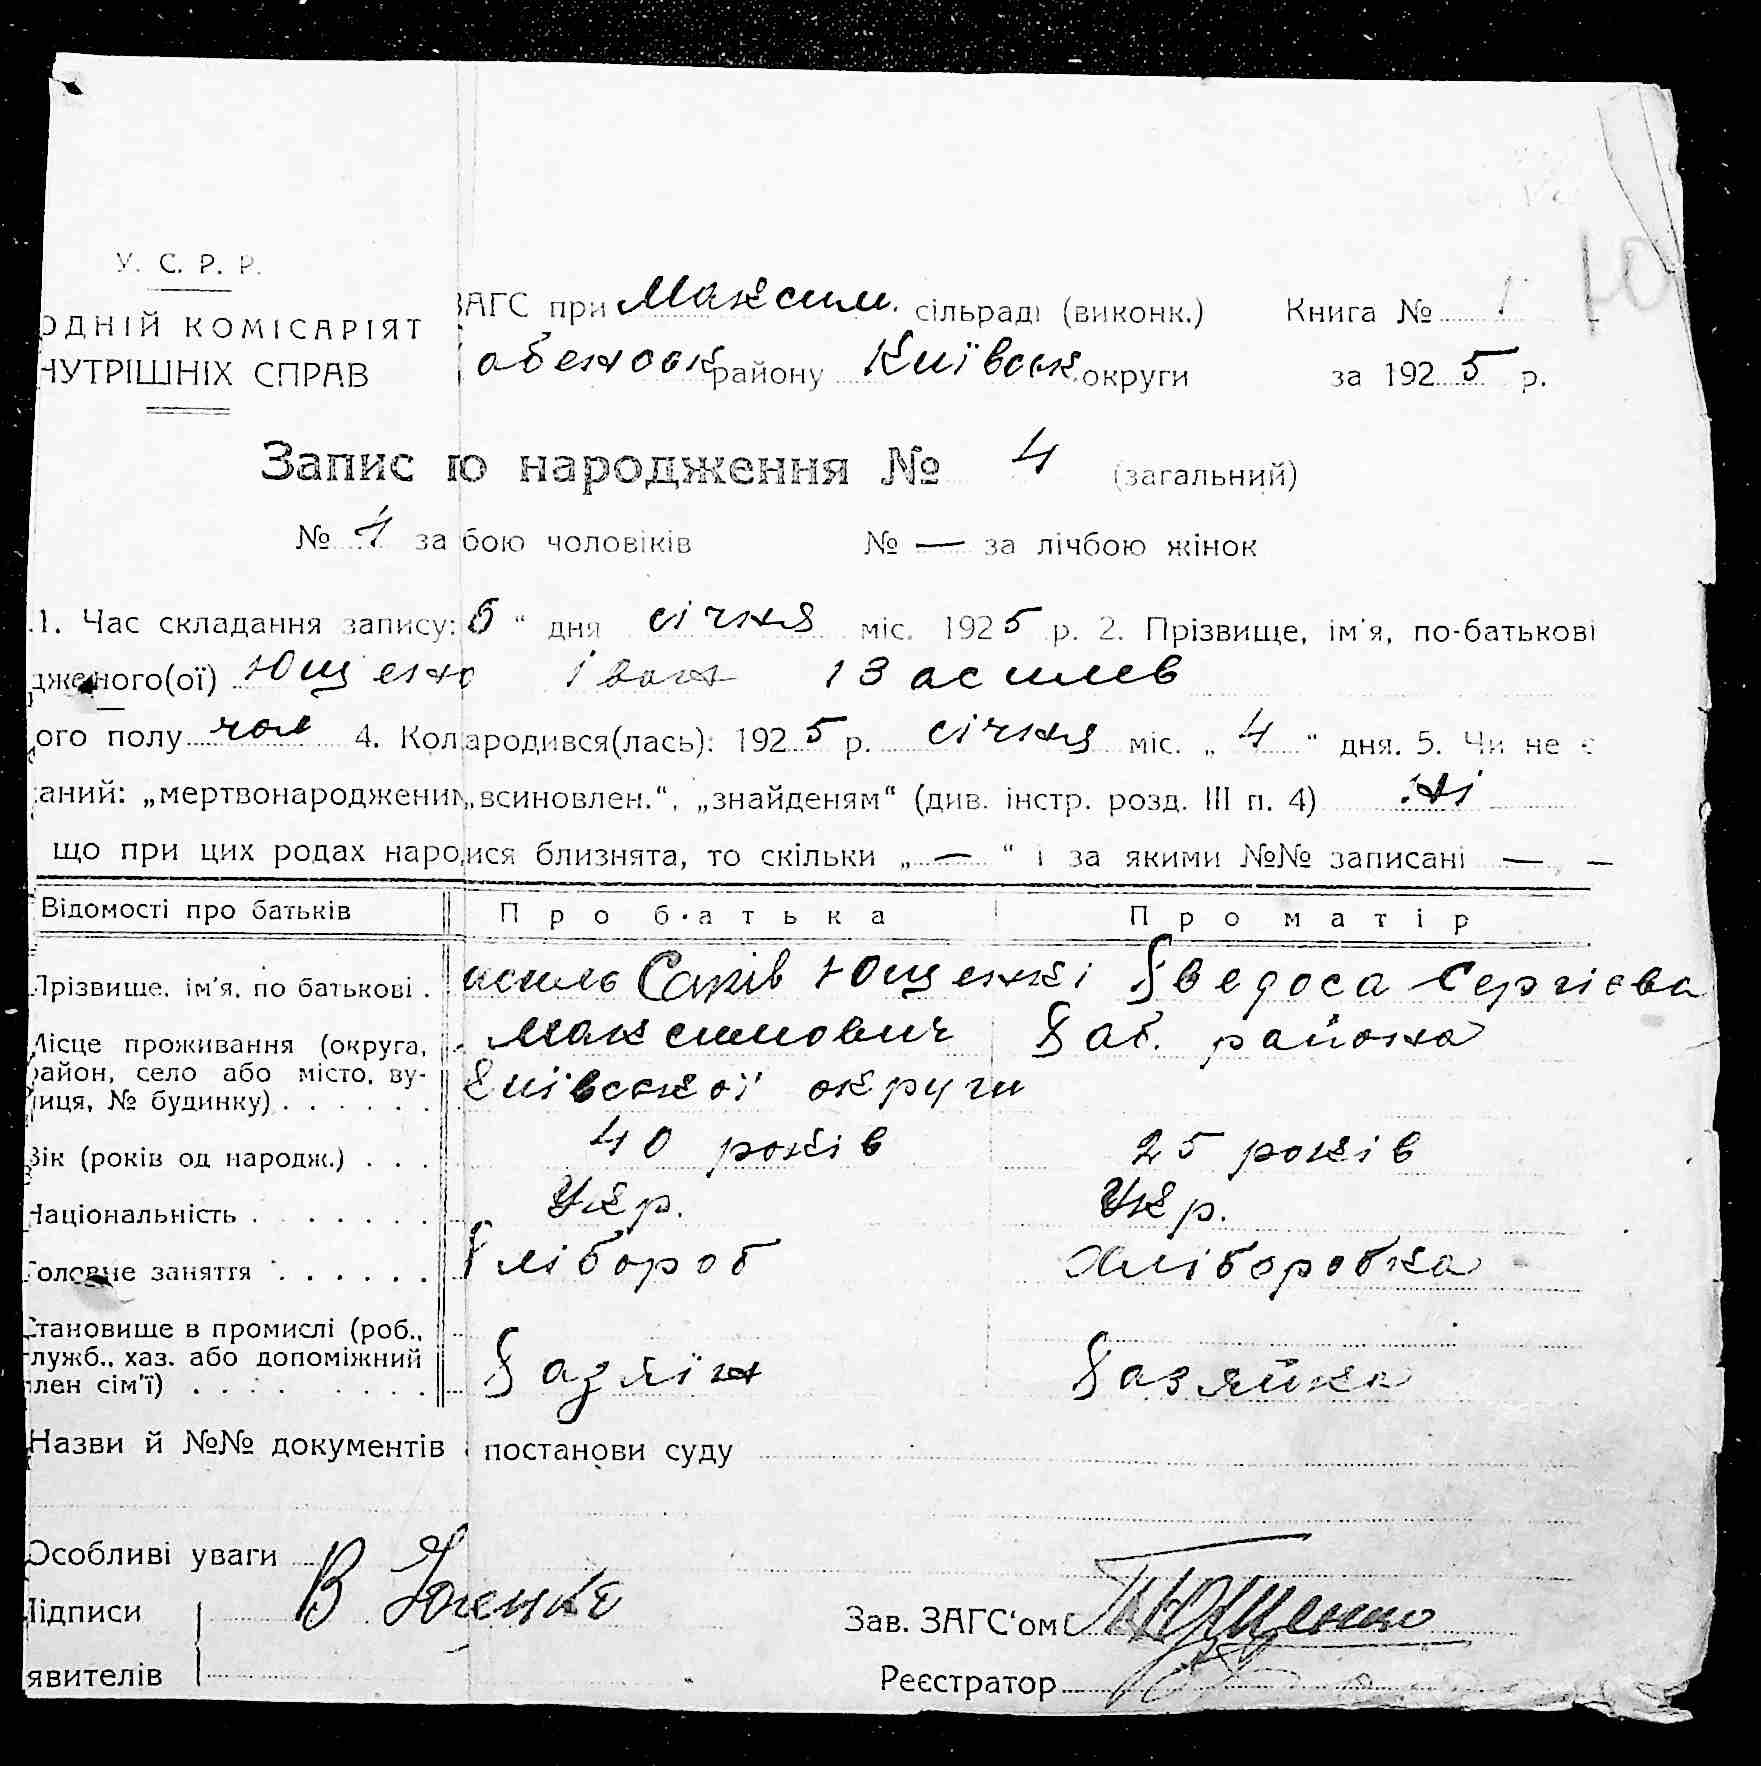 У. С. Р. Р.
ОДНІЙ КОМІСАРІЯТ
НУТРІШНІХ СПРАВ
ЗАГС при Максим. сільраді (виконк.) Книга № 1
абенськ району Київськ. округи за 1925 р.
Запис ю народження № 4 (загальний)
№ 4 за бою чоловіків № — за лічбою жінок
1. Час складання запису: 6 “ дня січня міс. 1925 р. 2. Прізвище, ім'я, по-батькові
дженого(ої) Ющенко Іван Василев
ого полу чол 4. Кол ародився(лась): 1925 р. січня міс. „ 4 “ дня. 5. Чи не є
аний: „мертвонароджений „всиновлен.“, „знайденям“ (див. інстр. розд. III п. 4) ні
що при цих родах наро ися близнята, то скільки „ — “ і за якими №№ записані — —
Відомості про батьків Про батька Про матір
Прізвище, ім'я, по батькові . асиль Ющенкі Хведоса Сергієва
Місце проживання (округа, район, село або місто, вулиця, № будинку) . . . . . . Максимович Хаб. района
Київської округи
Вік (років од народж.) . . . 40 років 25 років
Національність . . . . . . . Укр. Укр.
Головне заняття . . . . . . Хлібороб Хліборобка
Становище в промислі (роб.,
служб., хаз. або допоміжний
член сім'ї) . . . . . . . . Хазяїн Хазяйка
Назви й №№ документів і постанови суду
Особливі уваги
Підписи В Ющенко Зав. ЗАГС'ом Ющенко
явителів Реєстратор